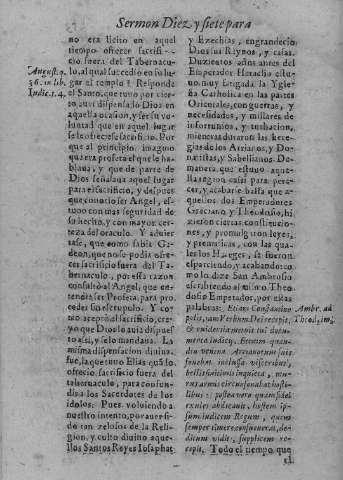 Sermon Diez y siete para
no era licito en aquel
tiempo ofrecer sacrifi-
cio fuera del Tabernacu-
lo, al qual succedio en so lu-
gar el templo? Responde
el Santo, que tuuo por cier-
to auia dispensado Dios en
aquella ocasion, y ser su vo-
luntad que en aquel lugar
se le ofreciesse sacrificio. Por
que al principio imagino
que era profeta el que le ha-
blaua, y que de parte de
Dios señalaua aquel lugar
para el sacrificio, y despues
que conocio ser Angel, es-
tuuo con mas seguridad de
su hecho, y con mayor cer-
teza del oraculo. Y aduier-
tase, que como sabia Ge-
deon, que no se podia ofre-
cer sacrificio fuera del Ta-
bernaculo, por essa razon
consultò al Angel, que en-
tendia ser Profeta, para pro-
ceder con escrupulo. Y co-
mo aceptado el sacrificio, cre-
yo que Dios lo auia dispuesto
assi, y se lo mandaua. La
misma dispensacion diuina
fue, la que tuuo Elias quãdo
ofrecio sacrificio fuera del
tabernaculo, para confun-
dir a los Sacerdotes de los
idolos. Pues boluiendo a
nuestro intento, por auer si-
do tan zelosos de la Reli-
gion, y culto diuino aque-
llos Santos Reyes Iosaphat
August. q.
36. in lib.
Iudic. t. 4.
y Ezechias, engrandecio
Dios sus Reynos, y casas.
Duzientos años antes del
Emperador Heraclio estu-
uo muy fatigada la Ygle-
sia Catholica en las partes
Orientales, con guerras, y
necessidades, y millares de
infortunios, y turbacion,
mientras duraron las here-
gias de los Arrianos, y Do-
natistas, y Sabellianos. De-
manera que estuuo aque-
lla region casi para pere-
cer, y acabarse hasta que a-
quellos dos Emperadores
Graciano, y Theodosio, hi-
zieron ciertas constitucio-
nes, y promulgaron leyes,
y prematicas, con las qua-
les los Hereges, se fueron
esparciendo, y acabando: co-
mo lo dize San Ambrosio
escribiendo al mismo Theo-
dosio Emperador, por estas
palabras:
Ambr. ad
Theod. imp.
recepit. Todo el tiempo que
el